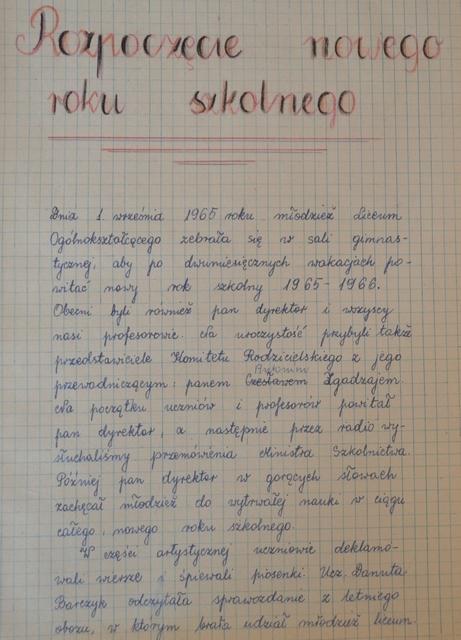 Rozpoczęcie nowego
roku szkolnego
Dnia 1. września 1965 roku młodzież Liceum
Ogólnokształcącego zebrała się w sali gimnas-
tycznej, aby po dwumiesięcznych wakacjach po-
witać nowy rok szkolny 1965-1966.
Obecni byli również pan dyrektor i wszyscy
nasi profesorowie. Na uroczystość przybyli także
przedstawiciele Komitetu Rodzicielskiego z jego
Antonim
przewodniczącym: panem Czesławem Zgadzajem.
Na początku uczniów i profesorów powitał
pan dyrektor, a następnie przez radio wy-
słuchaliśmy przemówienia Ministra Szkolnictwa.
Później pan dyrektor w gorących słowach
zachęcał młodzież do wytrwałej nauki w ciągu
całego, nowego roku szkolnego.
W części artystycznej uczniowie deklamo-
wali wiersze i śpiewali piosenki. Ucz. Danuta
Barczyk odczytała sprawozdanie z letniego
obozu, w którym brała udział młodzież liceum.